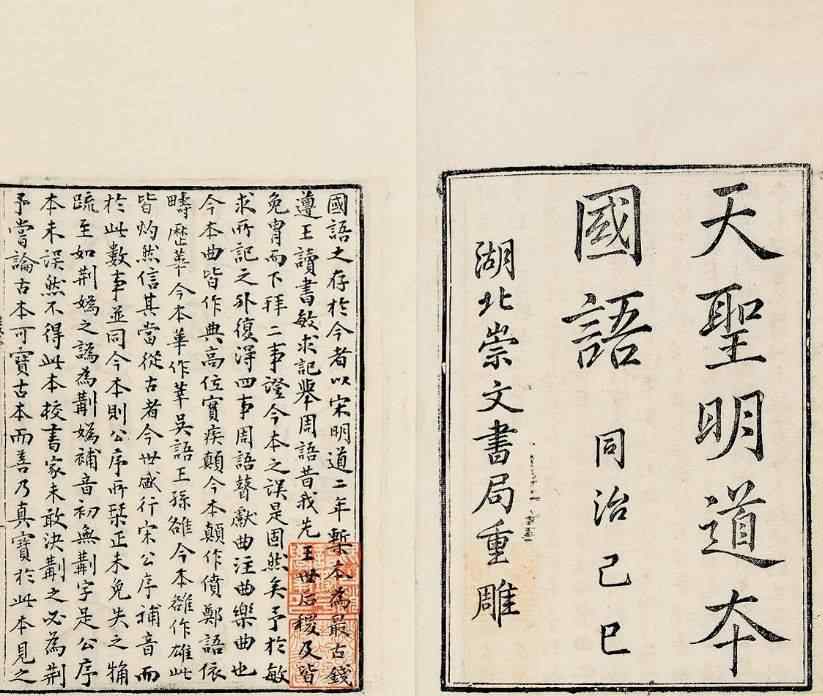 天聖明道本
國語 同治己巳
湖北崇文書局重雕
國語之存於今者以宋明道二年槧本為最古錢
遵王讀書敏求記舉周語昔我先王世后稷及皆
免胄而下拜二事證今本之誤是固然矣予於敏
求所記之外復得四事周語瞽獻曲注曲樂曲也
今本曲皆作典高位實疾顛今本顛作僨鄭語依
疇歷華今本華作莘吳語王孫雒今本雒作雄此
皆灼然信其當從古者今世盛行宋公序補音而
於此數事並同今本則公序所栞正未免失之觕
疏至如荆嬀之譌為嬀補音初無字是公序
本未誤然不得此本校書家未敢決之必為荆
予嘗論古本可寶古本而善乃真寶於此本見之